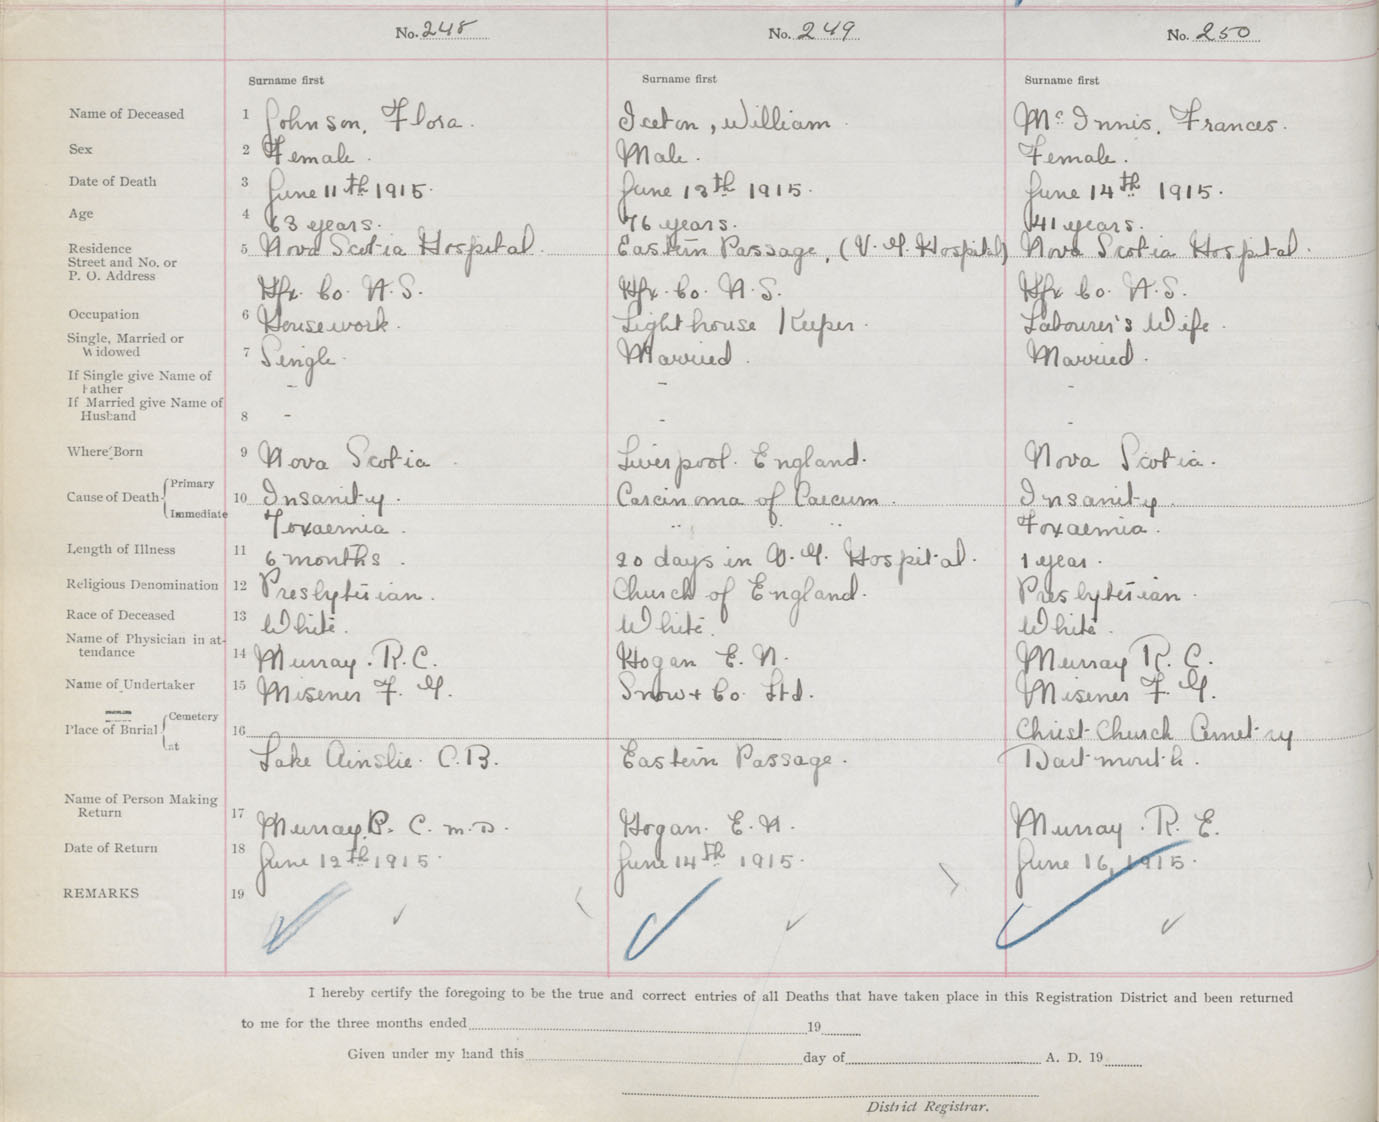 No. 248 No. 249 No. 250
Surname first Surname first Surname first
Name of Deceased 1 Johnson, Flora. Iceton, William Mc Innis, Frances.
Sex 2 Female. Male. Female.
Date of Death 3 June 11th 1915. June 13th 1915. June 14th 1915.
Age 4 63 years. 76 years. 41 years.
Residence 5 Nova Scotia Hospital. Eastern Passage, (V.G. Hospital) Nova Scotia Hospital.
Street and No. or
P. O. Address Hfx. Co. N.S. Hfx. Co. N.S. Hfx Co. N.S.
Occupation 6 Housework. Lighthouse Keeper. Labourer's Wife.
Single, Married or
Widowed 7 Single. Married. Married.
If Single give Name of
Father - - -
If Married give Name of
Husband 8 - - -
Where Born 9 Nova Scotia Liverpool. England. Nova Scotia.
Cause of Death Primary 10 Insanity. Carcinoma of Caecum. Insanity.
Immediate Toxaemia. " " " Toxaemia.
Length of Illness 11 6 months. 20 days in V.G. Hospital. 1 year.
Religious Denomination 12 Presbyterian. Church of England. Presbyterian.
Race of Deceased 13 White. White. White.
Name of Physician in at-
tendance 14 Murray. R. C. Hogan E. N. Murray R. C.
Name of Undertaker 15 Misener F. G. Snow & Co. Ltd. Misener F. G.
Place of Burial Cemetery 16 Christ Church Cemetry
at Lake Ainslie. C.B. Eastern Passage. Dartmouth.
Name of Person Making
Return 17 Murray, R. C. M.D. Hogan. E. N. Murray. R. E.
Date of Return 18 June 12th 1915. June 14th 1915. June 16, 1915.
REMARKS 19
I hereby certify the foregoing to be the true and correct entries of all Deaths that have taken place in this Registration District and been returned
to me for the three months ended 19
Given under my hand this day of A. D. 19
District Registrar.